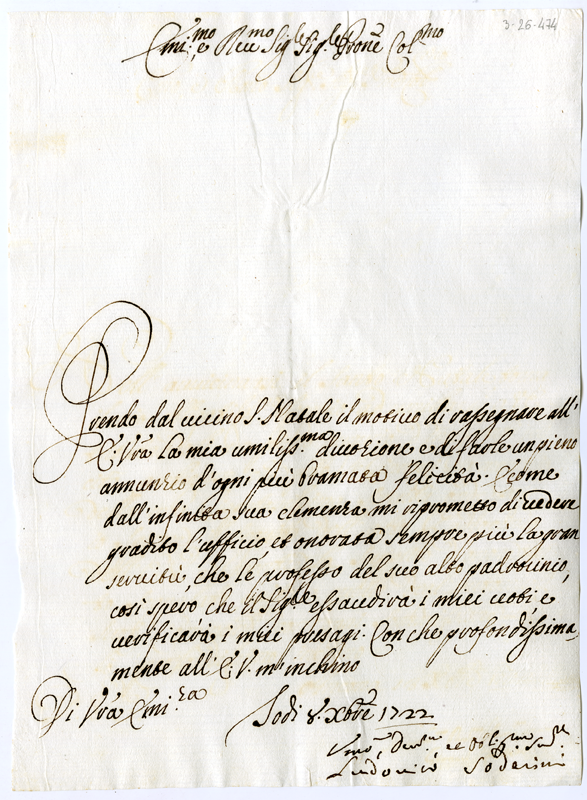 3-26-474
Emi.mo, e Re.mo Sig.le Sig.le Prone Col.mo
Prendo dal vicino S. Natale il motivo di rassegnare all'
E. Vra la mia umiliss.ma divozione e di farle un pieno
annunzio d'ogni più bramata felicità. E come
dall'infinita sua clemenza mi riprometto di vedere
gradito l'ufficio, et onorata sempre più la gran
servitù, che le professo del suo alto padrocinio,
così spero che il Sig.le essaudirà i miei voti, e
verificarà i miei presagi. Con che profondissima,
mente all'E. V. m'inchino
Di Vra Emi.za
Lodi 8. Xbre 1722
Umo, Devo, et Obligmo
Ludovico Soderini